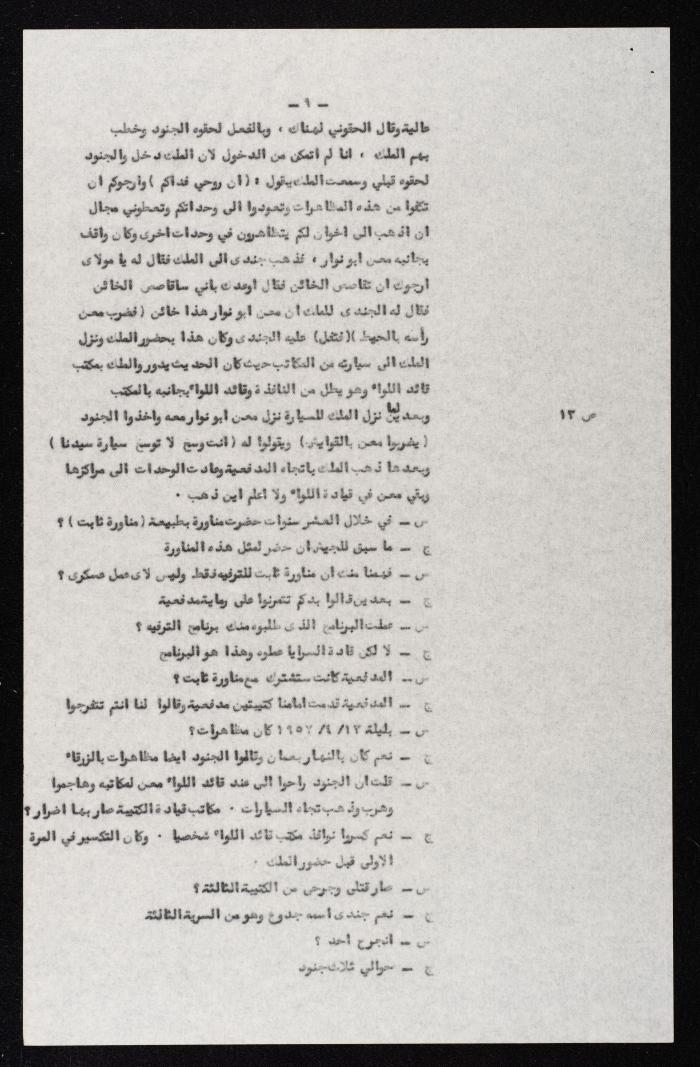 - ٩ -
عالية وقال الحقوني لهناك ، وبالفعل لحقوه الجنود وخطب
بهم الملك ، انا لم اتمكن من الدخول لان الملك دخل والجنود
لحقوه قبلي وسمعت الملك يقول : ( ان روحي فداكم ) وارجوكم ان
تكفوا من هذه المظاهرات وتعودوا الى وحداتكم وتعطوني مجال
ان اذهب الى اخوان لكم يتظاهرون في وحدات اخرى وكان واقف
بجانبه معن ابو نوار ، فذهب جندى الى الملك فقال له يا مولاى
ارجوك ان تقاصص الخائن فقال اوعدك باني ساقاصص الخائن
فقال له الجندى للملك ان معن ابو نوار هذا خائن ( فضرب معن
رأسه بالحيط )( فتفل ) عليه الجندى وكان هذا بحضور الملك ونزل
الملك الى سيارته من المكاتب حيث كان الحديث يدور والملك بمكتب
قائد اللواء وهو يطل من النافذة وقائد اللواء بجانبه بالمكتب
وبعدين لما نزل الملك للسيارة نزل معن ابو نوار معه واخذوا الجنود
ص ١٣
( يضربوا معن بالقوايش ) ويقولوا له ( انت وسخ لا توسخ سيارة سيدنا )
وبعدها ذهب الملك باتجاه المدفعية وعادت الوحدات الى مراكزها
وبقي معن في قيادة اللواء ولا اعلم اين ذهب .
س - في خلال العشر سنوات حضرت مناورة بطبيعة ( مناورة ثابت ) ؟
ج - ما سبق للجيش ان حضر لمثل هذه المناورة
س - فهمنا منك ان مناورة ثابت للترفيه فقط وليس لاى عمل عسكرى ؟
ج - بعدين قالوا بدكم تتمرنوا على رماية مدفعية
س - عملت البرنامج الذى طلبوه منك برنامج الترفيه ؟
ج - لا لكن قادة السرايا عملوه وهذا هو البرنامج
س - المدفعية كانت ستشترك مع مناورة ثابت ؟
ج - المدفعية قدمت امامنا كتيبتين مدفعية وقالوا لنا انتم تتفرجوا
س - بليلة ١٣/ ٤/ ١٩٥٧ كان مظاهرات ؟
ج - نعم كان بالنهار بعمان وقالوا الجنود ايضا مظاهرات بالزرقاء
س - قلت ان الجنود راحوا الى عند قائد اللواء معن لمكاتبه وهاجموا
وهرب وذهب تجاه السيارات . مكاتب قيادة الكتيبة صار بها اضرار ؟
ج - نعم كسروا نوافذ مكتب قائد اللواء شخصيا . وكان التكسير في المرة
الاولى قبل حضور الملك .
س - صار قتلى وجرحى من الكتيبة الثالثة ؟
ج - نعم جندى اسمه جدوع وهو من السرية الثالثة
س - انجرح احد ؟
ج - حوالي ثلاث جنود